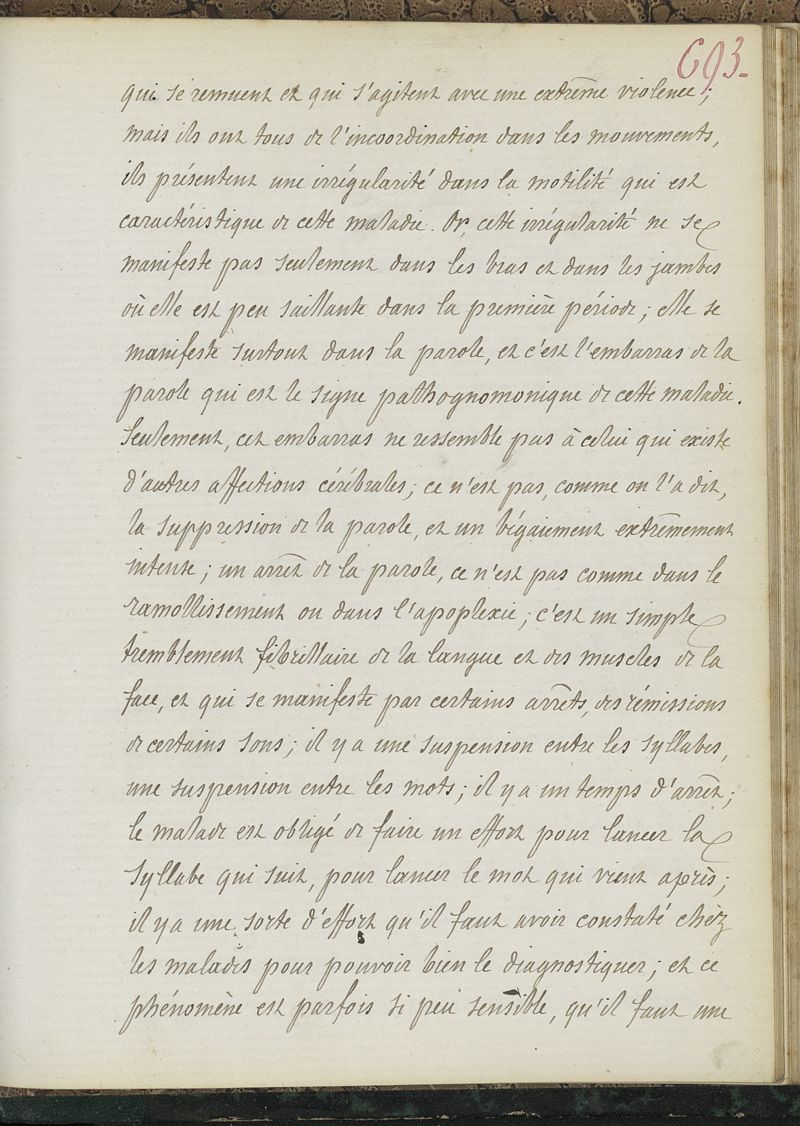 693.
qui se remuent et qui s'agitent avec une extrême violence;
mais ils ont tous de l'incoordination dans les mouvements,
ils présentent une irrégularité dans la motilité qui est
caractéristique de cette maladie. Or, cette irrégularité ne se
manifeste pas seulement dans les bras et dans les jambes
où elle est peu saillante dans la première période; elle se
manifeste surtout dans la parole, et c'est l'embarras de la
parole qui est le signe pathognomonique de cette maladie.
Seulement, cet embarras ne ressemble pas à celui qui existe
d'autres affections cérébrales; ce n'est pas, comme on l'a dit,
la suppression de la parole, et un bégaiement extrêmement
intense; un arrêt de la parole, ce n'est pas comme dans le
ramollissement ou dans l'apoplexie; c'est un simple
tremblement fibrillaire de la langue et des muscles de la
face, et qui se manifeste par certains arrêts, des rémissions
de certains sons; il y a une suspension entre les syllabes,
une suspension entre les mots; il y a un temps d'arrêt;
le malade est obligé de faire un effort pour lancer la
syllabe qui suit, pour lancer le mot qui vient après;
il y a une sorte d'effort qu'il faut avoir constaté chez
les malades pour pouvoir bien le diagnostiquer; et ce
phénomène est parfois si peu sensible, qu'il faut une